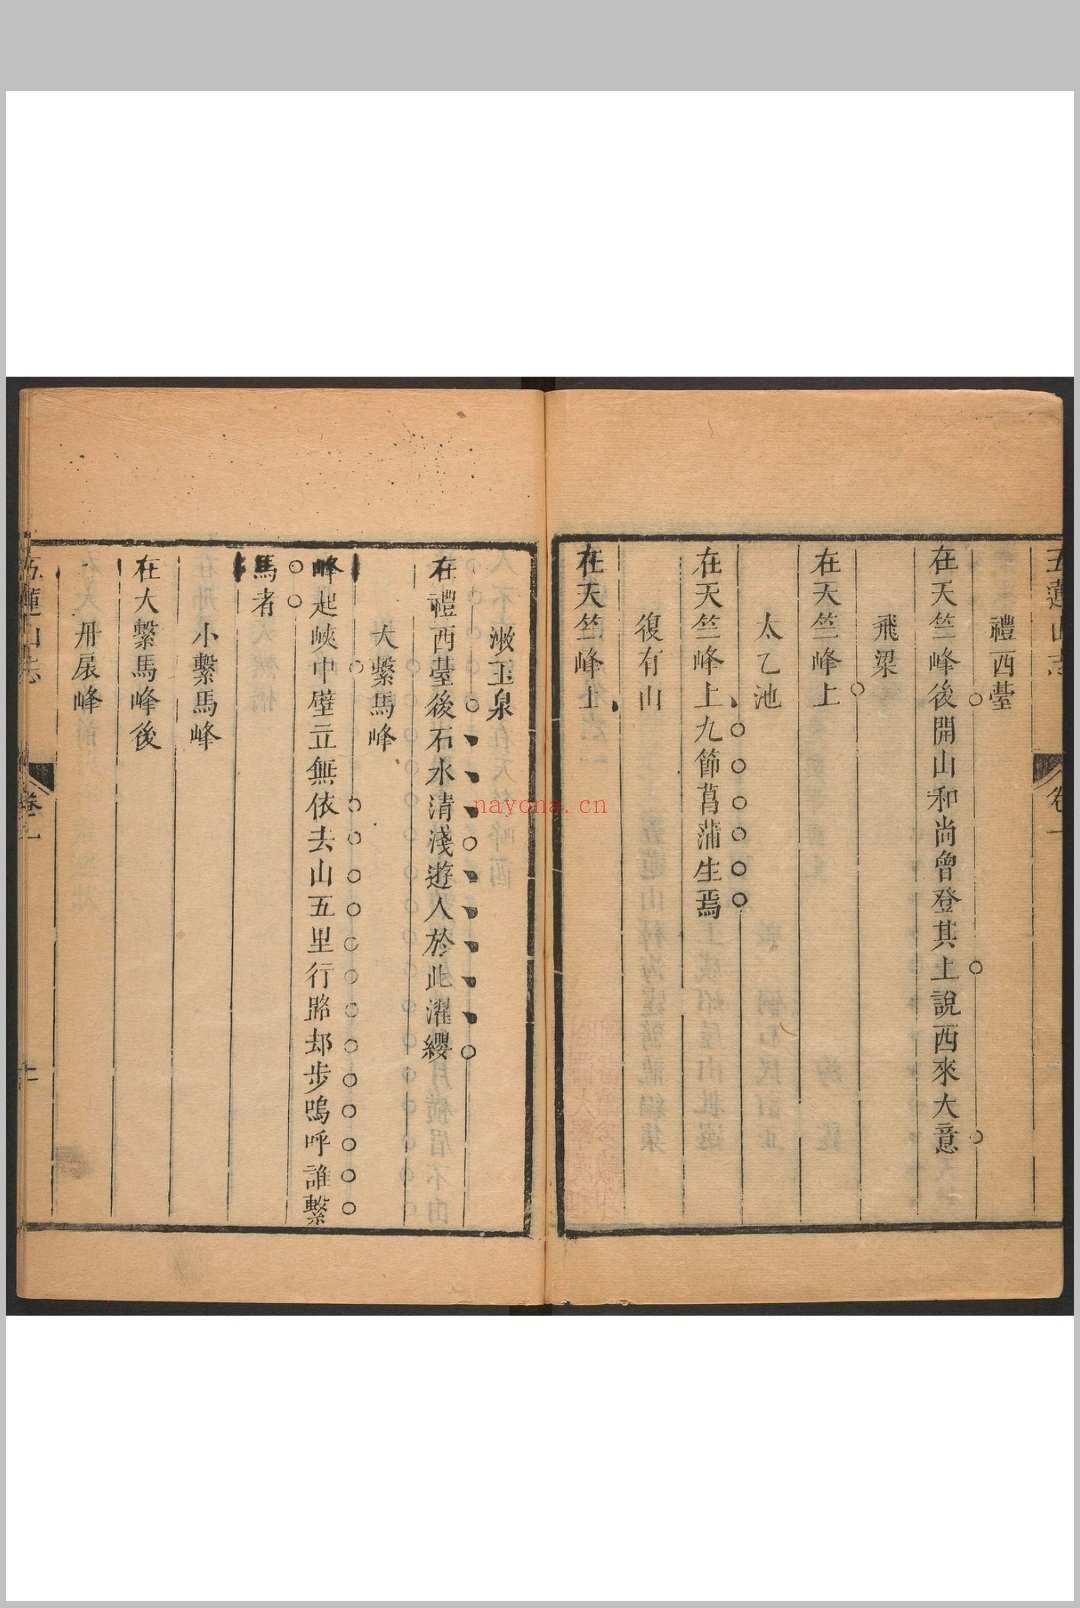 五蓮山志
卷一
禮西臺
在天竺峰後開山和尚曾登其上說西來大意
飛梁
在天竺峰上
太乙池
在天竺峰上九節菖蒲生焉
復有山
在天竺峰上
漱玉泉
在禮西臺後石水清淺遊人於此濯纓
大繫馬峰
峰起峽中壁立無依去山五里行路却步嗚呼誰繫
馬者
小繫馬峰
在大繫馬峰後
丹扆峰
五蓮山志
卷一
nayona.cn